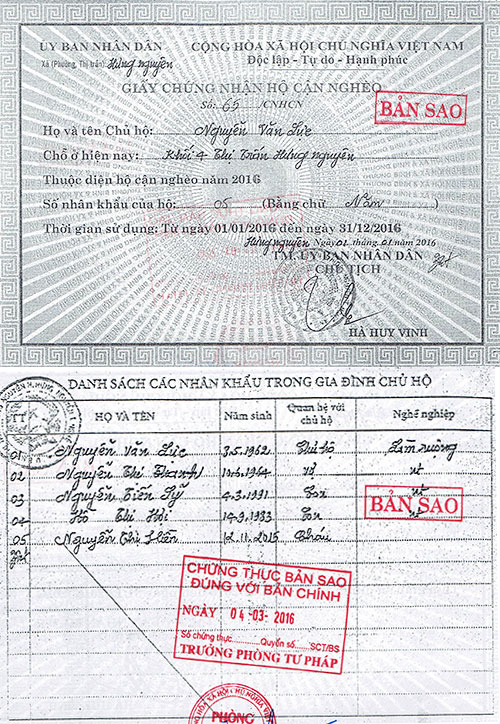 ỦY BAN NHÂN DÂN
Xã (Phường, Thị trấn): Hưng nguyên
CỘNG HÒA XÃ HỘI CHỦ NGHĨA VIỆT NAM
Độc lập - Tự do - Hạnh phúc
GIẤY CHỨNG NHẬN HỘ CẬN NGHÈO
Số: 65 /CNHCN
BẢN SAO
Họ và tên Chủ hộ: Nguyễn Văn Lực
Chỗ ở hiện nay: Khối 4 Thị Trấn Hưng nguyên
Thuộc diện hộ cận nghèo năm 2016
Số nhân khẩu của hộ: 05 (Bằng chữ Năm )
Thời gian sử dụng: Từ ngày 01/01/2016 đến ngày 31/12/2016
Hưng nguyên Ngày 01 tháng 01 năm 2016
TM. ỦY BAN NHÂN DÂN
CHỦ TỊCH
HÀ HUY VINH
DANH SÁCH CÁC NHÂN KHẨU TRONG GIA ĐÌNH CHỦ HỘ
HỌ VÀ TÊN Năm sinh Quan hệ với chủ hộ Nghề nghiệp
01 Nguyễn Văn Lực 3.5.1962 Chủ hộ Làm ruộng
02 Nguyễn Thị Thanh 1964 Vợ nt
03 Nguyễn Tiến Sỹ 4.3.1991 Con nt
04 Hồ Thị Hội 14.9.1983 Con nt
05 Nguyễn Thị Hiền 12.11.2015 Cháu
BẢN SAO
CHỨNG THỰC BẢN SAO
ĐÚNG VỚI BẢN CHÍNH
NGÀY 04-03-2016
Số chứng thực Quyển số SCT/BS
TRƯỞNG PHÒNG TƯ PHÁP
PHÒNG